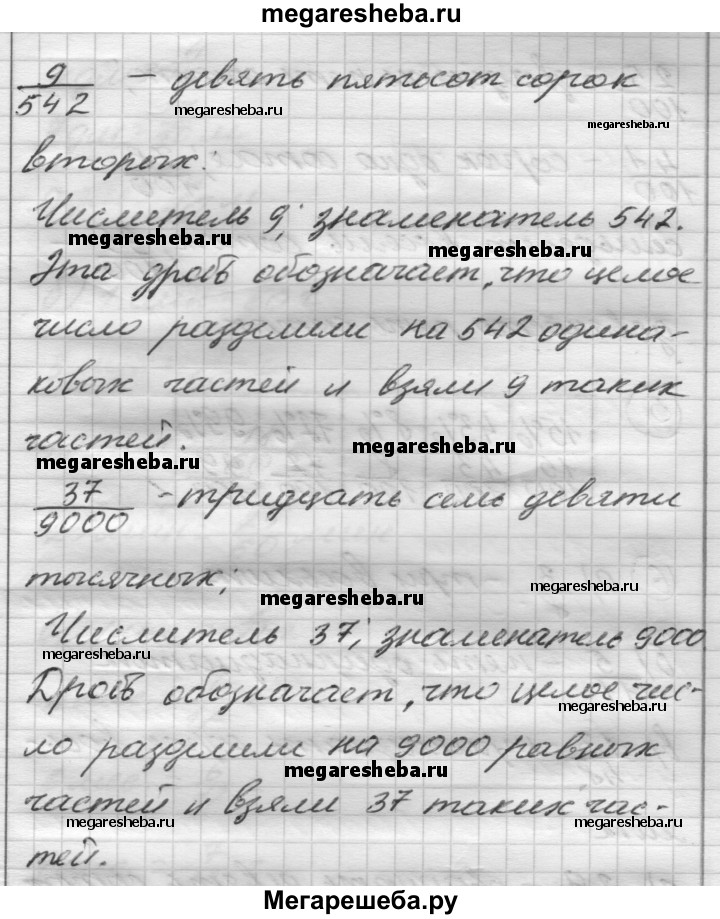 megaresheba.ru
9/542 — девять пятьсот сорок
megaresheba.ru
megaresheba.ru
вторых:
Числитель 9; знаменатель 542.
megaresheba.ru
megaresheba.ru
Эта дробь обозначает, что целое
число разделили на 542 одина-
ковых частей и взяли 9 таких
частей.
megaresheba.ru
megaresheba.ru
37/9000 - тридцать семь девяти
тысячных;
megaresheba.ru
megaresheba.ru
Числитель 37; знаменатель 9000.
megaresheba.ru
Дробь обозначает, что целое чис-
megaresheba.ru
ло разделили на 9000 равных
megaresheba.ru
частей и взяли 37 таких час-
megaresheba.ru
megaresheba.ru
тей.
Мегарешеба.ру